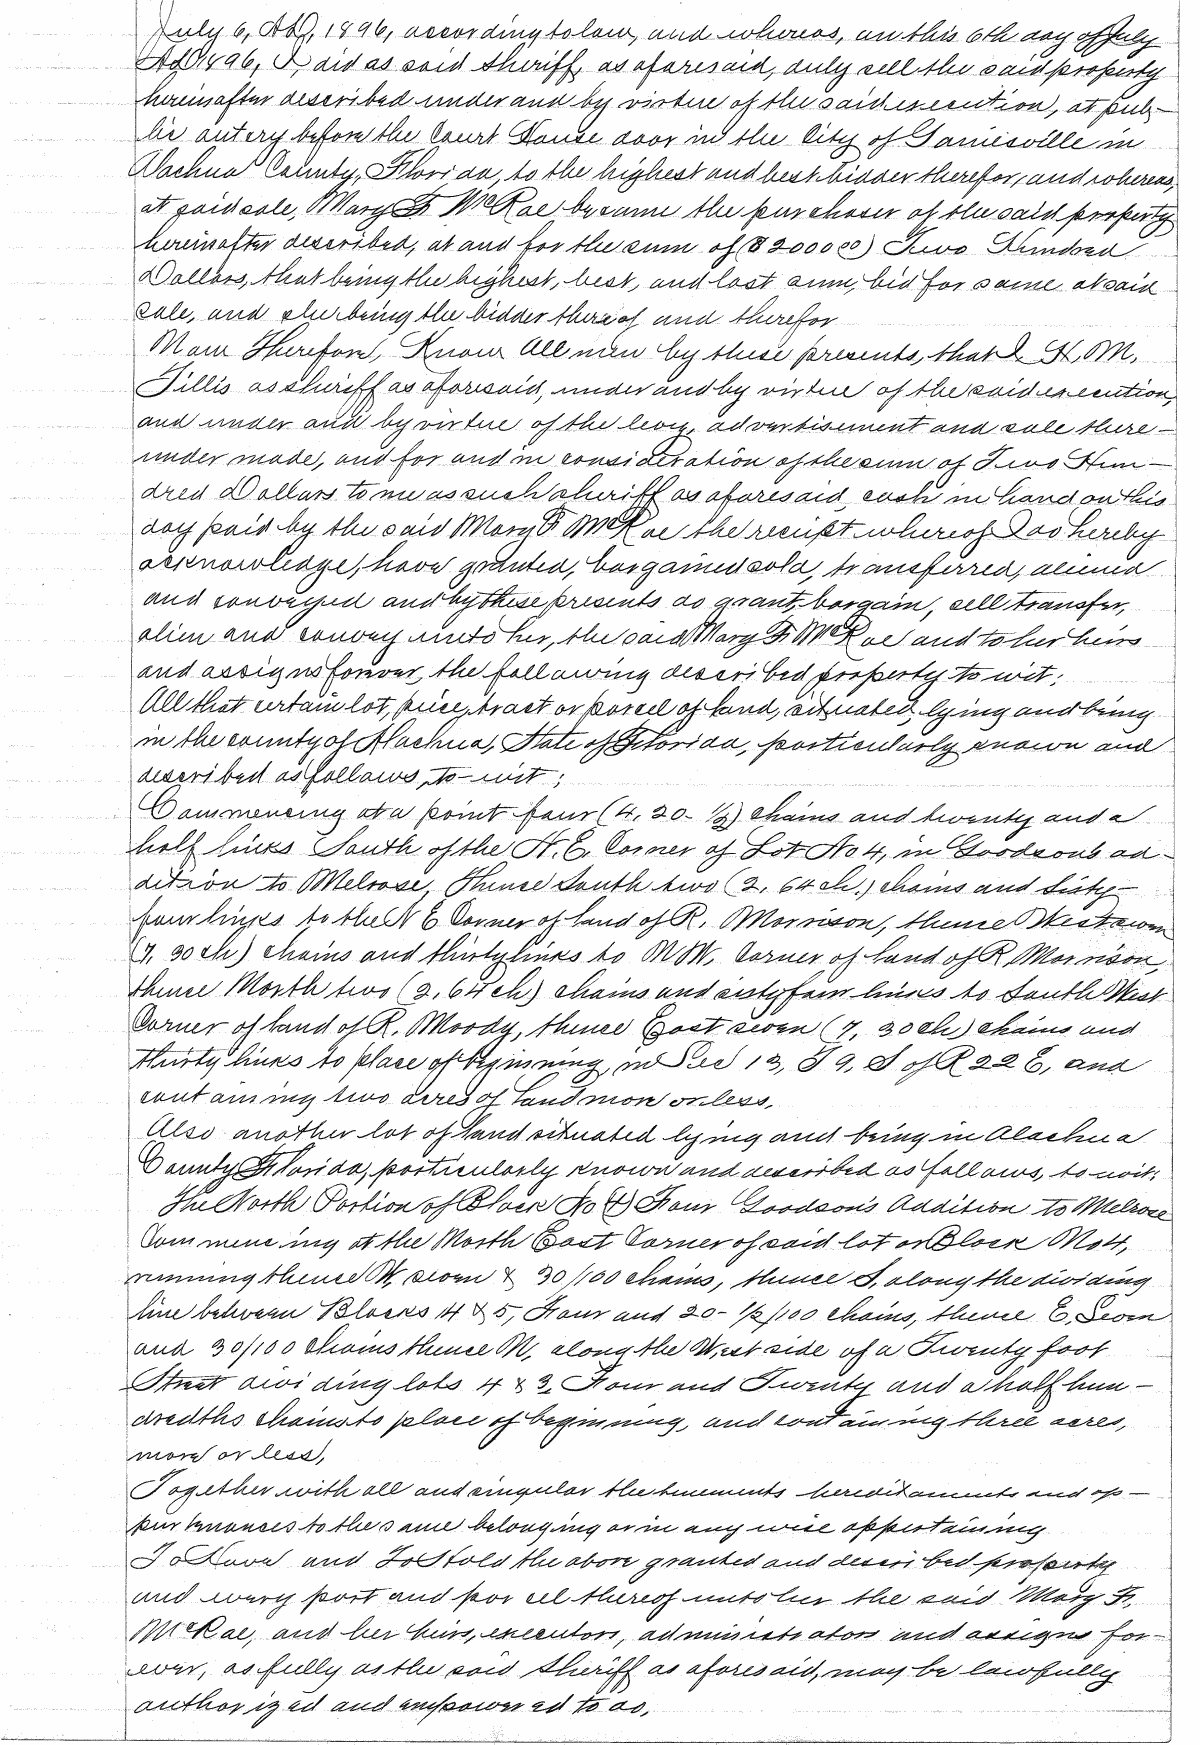 July 6, AD, 1896, according to law, and whereas, on this 6th day of July
AD 1896, I, did as said sheriff, as aforesaid, duly sell the said property
hereinafter described under and by virtue of the said execution, at pub-
lic outcry before the Court House door in the City of Gainesville in
Alachua County, Florida, to the highest and best bidder therefor, and whereas,
at said sale, Mary F. McRae became the purchaser of the said property
hereinafter described, at and for the sum of ($200 00) Two Hundred
Dollars, that being the highest, best, and last sum, bid for same at said
sale, and she being the bidder thereof and therefor
Now Therefore, Know All men by these presents, that I H. M.
Tillis as sheriff as aforesaid, under and by virtue of the said execution,
and under and by virtue of the levy, advertisement and sale there-
under made, and for and in consideration of the sum of Two Hun-
dred Dollars to me as such sheriff as aforesaid, cash in hand on this
day paid by the said Mary F. McRae the receipt whereof I do hereby
acknowledge, have granted, bargained sold, transferred, aliened
and conveyed and by these presents do grant, bargain, sell transfer,
alien and convey unto her, the said Mary F. McRae and to her heirs
and assigns forever, the following described property to wit;
All that certain lot, piece, tract or parcel of land, situated, lying and being
in the county of Alachua, State of Florida, particularly known and
described as follows, to-wit;
Commencing at a point four (4, 20-½) chains and twenty and a
half links South of the N. E. Corner of Lot No 4, in Goodson's ad-
dition to Melrose, Thence South two (2, 64 ch.) chains and Sixty-
four links to the N E Corner of land of R. Morrison, thence West seven
(7, 30 ch) chains and thirty links to N W. Corner of land of R Morrison,
thence North two (2, 64 ch) chains and sixty four links to South West
Corner of land of R. Moody, thence East seven (7, 30 ch) chains and
thirty links to place of beginning, in Sec 13, T 9, S of R 22 E, and
containing two acres of land more or less.
Also another lot of land situated lying and being in Alachua
County Florida, particularly known and described as follows, to-wit;
The North Portion of Block No (4) Four Goodson's Addition to Melrose
Commencing at the North East Corner of said lot or Block No 4,
running thence W, seven & 30/100 chains, thence S, along the dividing
line between Blocks 4 & 5, Four and 20-1/2/100 chains, thence E, Seven
and 30/100 chains thence N, along the West side of a Twenty foot
Street dividing lots 4 & 3, Four and Twenty and a half hun-
dredths chains to place of beginning, and containing three acres,
more or less,
Together with all and singular the tenements hereditaments and ap-
purtenances to the same belonging or in any wise appertaining
To Have and To Hold the above granted and described property
and every part and parcel thereof unto her the said Mary F.
McRae, and her heirs, executors, administrators and assigns for-
ever, as fully as the said sheriff as aforesaid, may be lawfully
authorized and empowered to do.